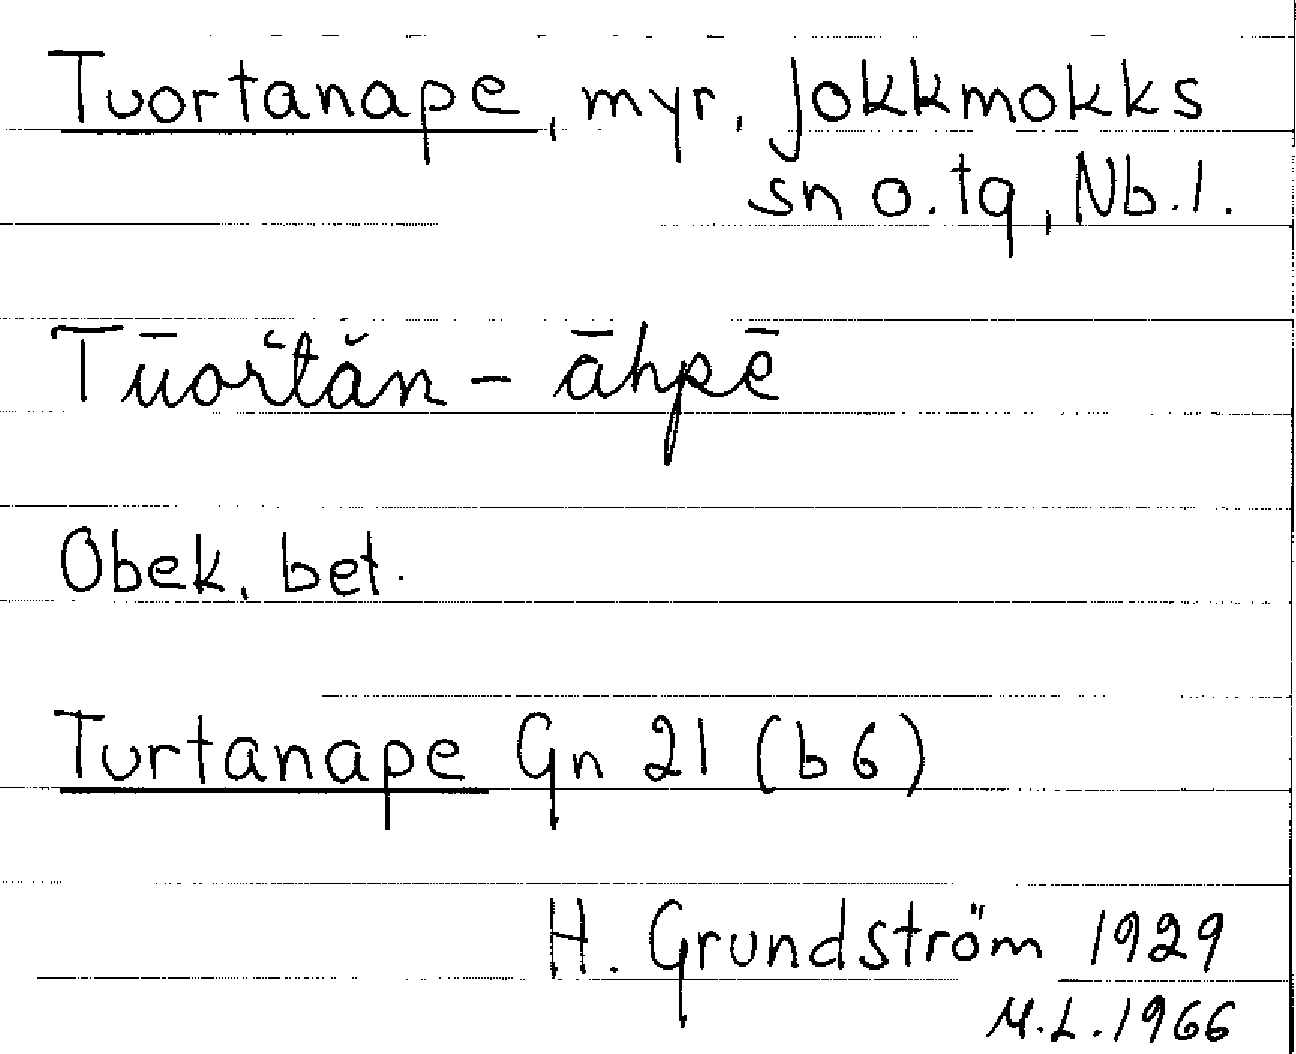 Tuortanape, myr, Jokkmokks
sn o. tg, Nb. l.
Tūořtăn - āhpē
Obek. bet.
Turtanape Gn 21 (b 6)
H. Grundström 1929
M.L. 1966